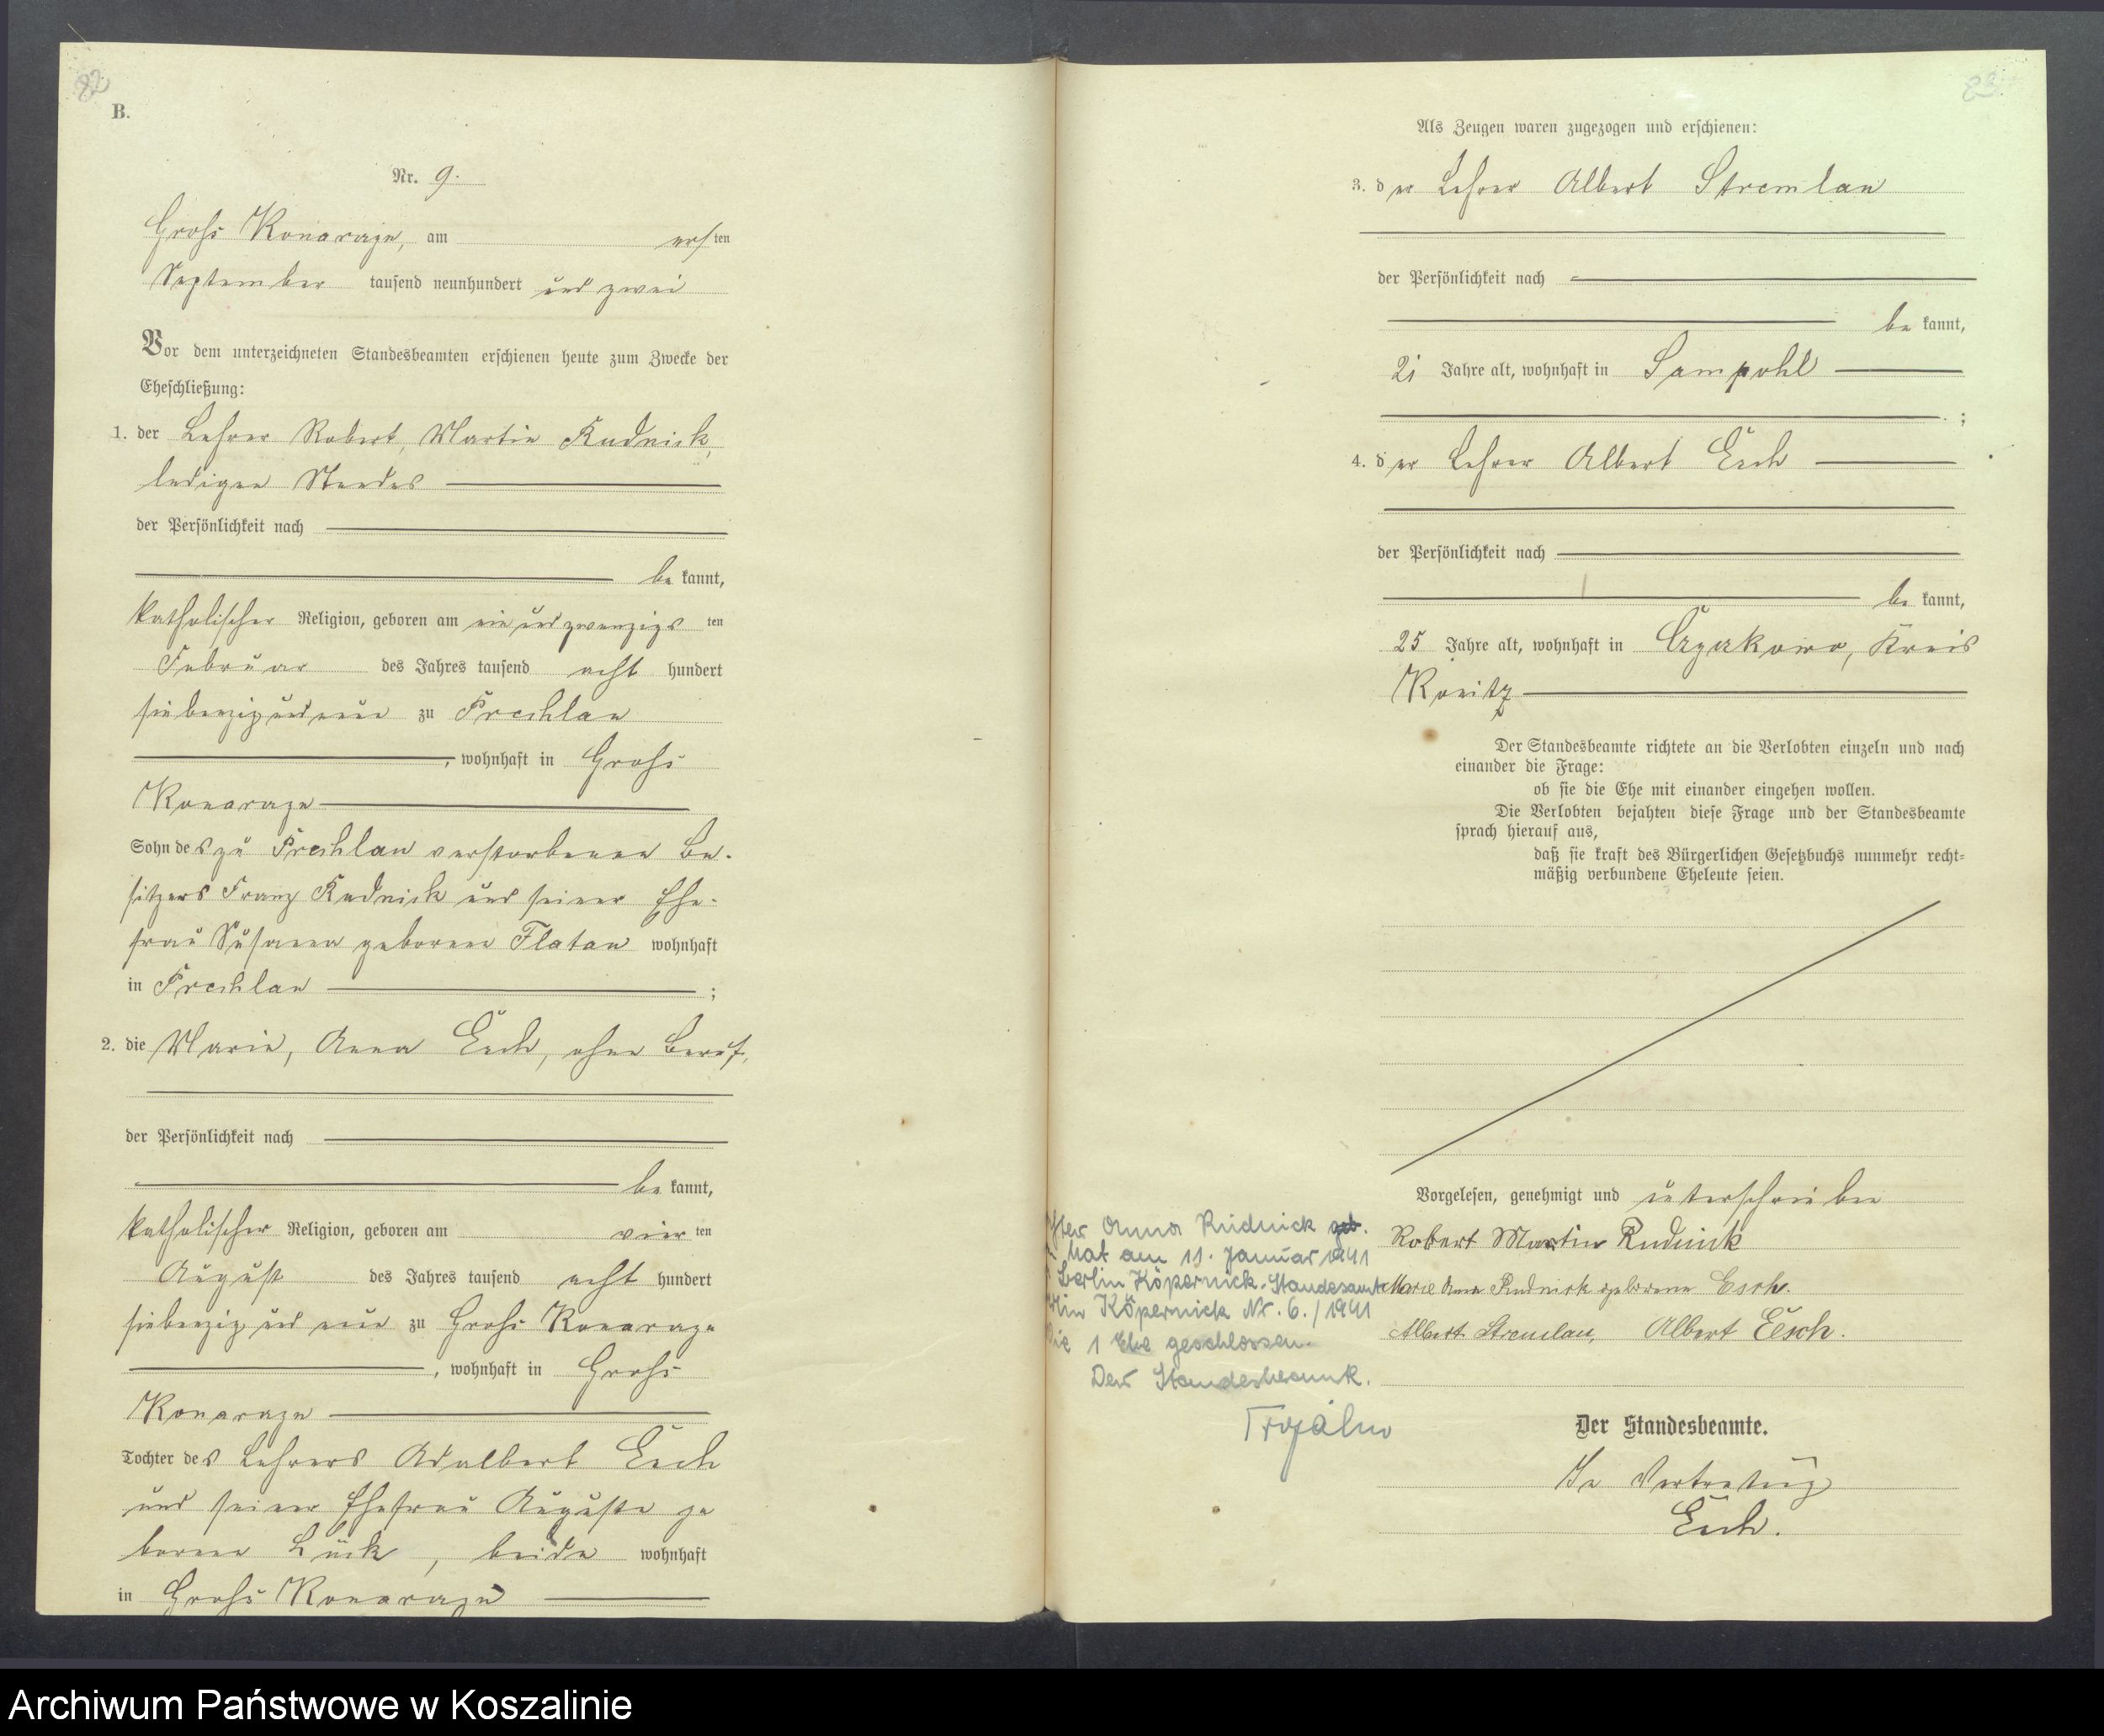 82
B.
Nr. 9.
Groß Konarczyn, am ersten
September tausend neunhundert und zwei
Vor dem unterzeichneten Standesbeamten erschienen heute zum Zwecke der
Eheschließung:
1. der Lehrer Robert, Martin Rudnick,
ledigen Standes
der Persönlichkeit nach
be kannt,
katholischer Religion, geboren am ein und zwanzigsten
Februar des Jahres tausend acht hundert
siebenzig und neun zu Prechlau
, wohnhaft in Groß
Konarczyn
Sohn des zu Prechlau verstorbenen Be-
sitzers Franz Rudnick und seiner Ehe-
frau Susanna geborene Flatau wohnhaft
in Prechlau ;
2. die Marie, Anna Esch, ohne Beruf,
der Persönlichkeit nach
be kannt,
katholischer Religion, geboren am vierten
August des Jahres tausend acht hundert
siebenzig und neun zu Groß Konarczyn
, wohnhaft in Groß
Konarczyn
Tochter des Lehrers Adalbert Esch
und seiner Ehefrau Auguste ge
borene Lück, beide wohnhaft
in Groß Konarczyn
83
Als Zeugen waren zugezogen und erschienen:
3. der Lehrer Albert Stremlau
der Persönlichkeit nach
be kannt,
21 Jahre alt, wohnhaft in Sampohl
;
4. der Lehrer Albert Esch
der Persönlichkeit nach
be kannt,
25 Jahre alt, wohnhaft in Kreis
Konitz
Der Standesbeamte richtete an die Verlobten einzeln und nach
einander die Frage:
ob sie die Ehe mit einander eingehen wollen.
Die Verlobten bejahten diese Frage und der Standesbeamte
sprach hierauf aus,
daß sie kraft des Bürgerlichen Gesetzbuchs nunmehr recht-
mäßig verbundene Eheleute seien.
Vorgelesen, genehmigt und unterschrieben
Robert Martin Rudnick
Marie Anna Rudnick geborene Esch.
Albert Stremlau, Albert Esch.
Der Standesbeamte.
In Vertretung
Esch.
Anna Rudnick geb.
hat am 11. Januar 1941
Berlin Köpernick. Standesamt
Köpernick Nr. 6./1941
die 1 Ehe geschlossen.
Der Standesbeamte.
Archiwum Państwowe w Koszalinie